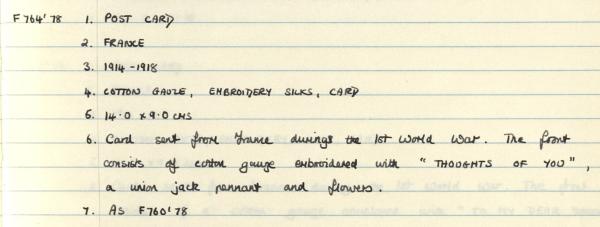 F764'78 1. POST CARD
2. FRANCE
3. 1914-1918
4. COTTON GAUZE, EMBROIDERY SILKS, CARD
5. 14.0 x 9.0 CMS
6. Card sent from France durings the 1st World War. The front
consists of cotton gauge embroidered with "THOUGHTS OF YOU",
a union jack pennant and flowers.
7. AS F760'78